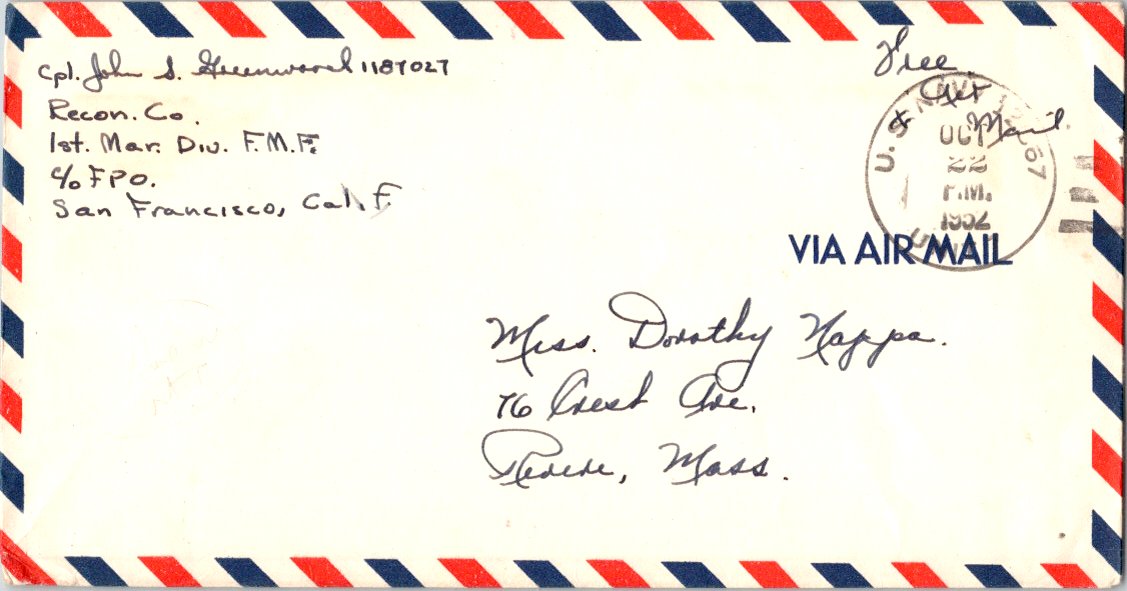 Cpl. John S. Greenwood 1187027
Recon. Co.
1st. Mar. Div. F.M.F.
c/o FPO.
San Francisco, Calif.
Free
Air
Mail
U.S. NAVY
OCT
22
P.M.
1952
VIA AIR MAIL
Miss. Dorothy Nappa.
76 Crest Ave.
Revere, Mass.